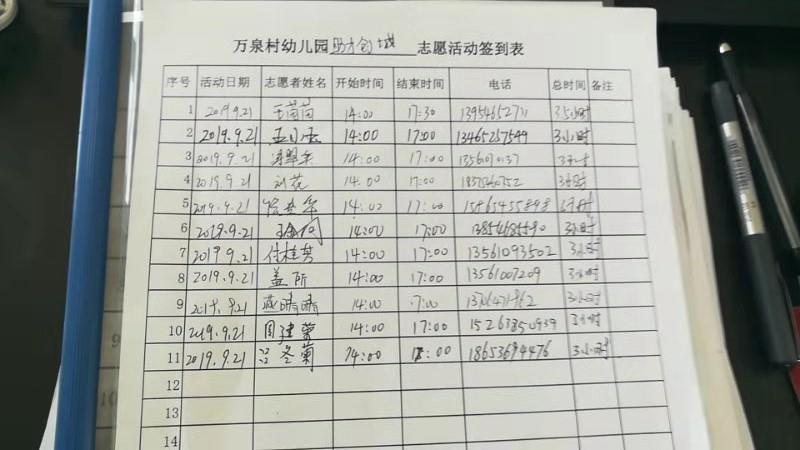 万泉村幼儿园助力创城志愿活动签到表
序号 活动日期 志愿者姓名 开始时间 结束时间 电话 总时间 备注
1 2019.9.21 王茵茵 14:00 17:30 3.5小时
2 2019.9.21 孟小玉 14:00 17:00 13465257599 3小时
3 2019.9.21 14:00 17:00 3小时
4 2019.9.21 刘花 14:00 17:00 3小时
5 2019.9.21 14:00 17:00 15965455898
6 2019.9.21 14:00 17:00 3小时
7 2019.9.21 付桂芳 14:00 17:00 13561093502 3小时
8 2019.9.21 盖昕 14:00 17:00 13561007209 3小时
9 燕晴晴 14:00 3小时
10 2019.9.21 周建荣 14:00 17:00 15263850939 3小时
11 2019.9.21 冬菊 14:00 18653694476 3小时
12
13
14